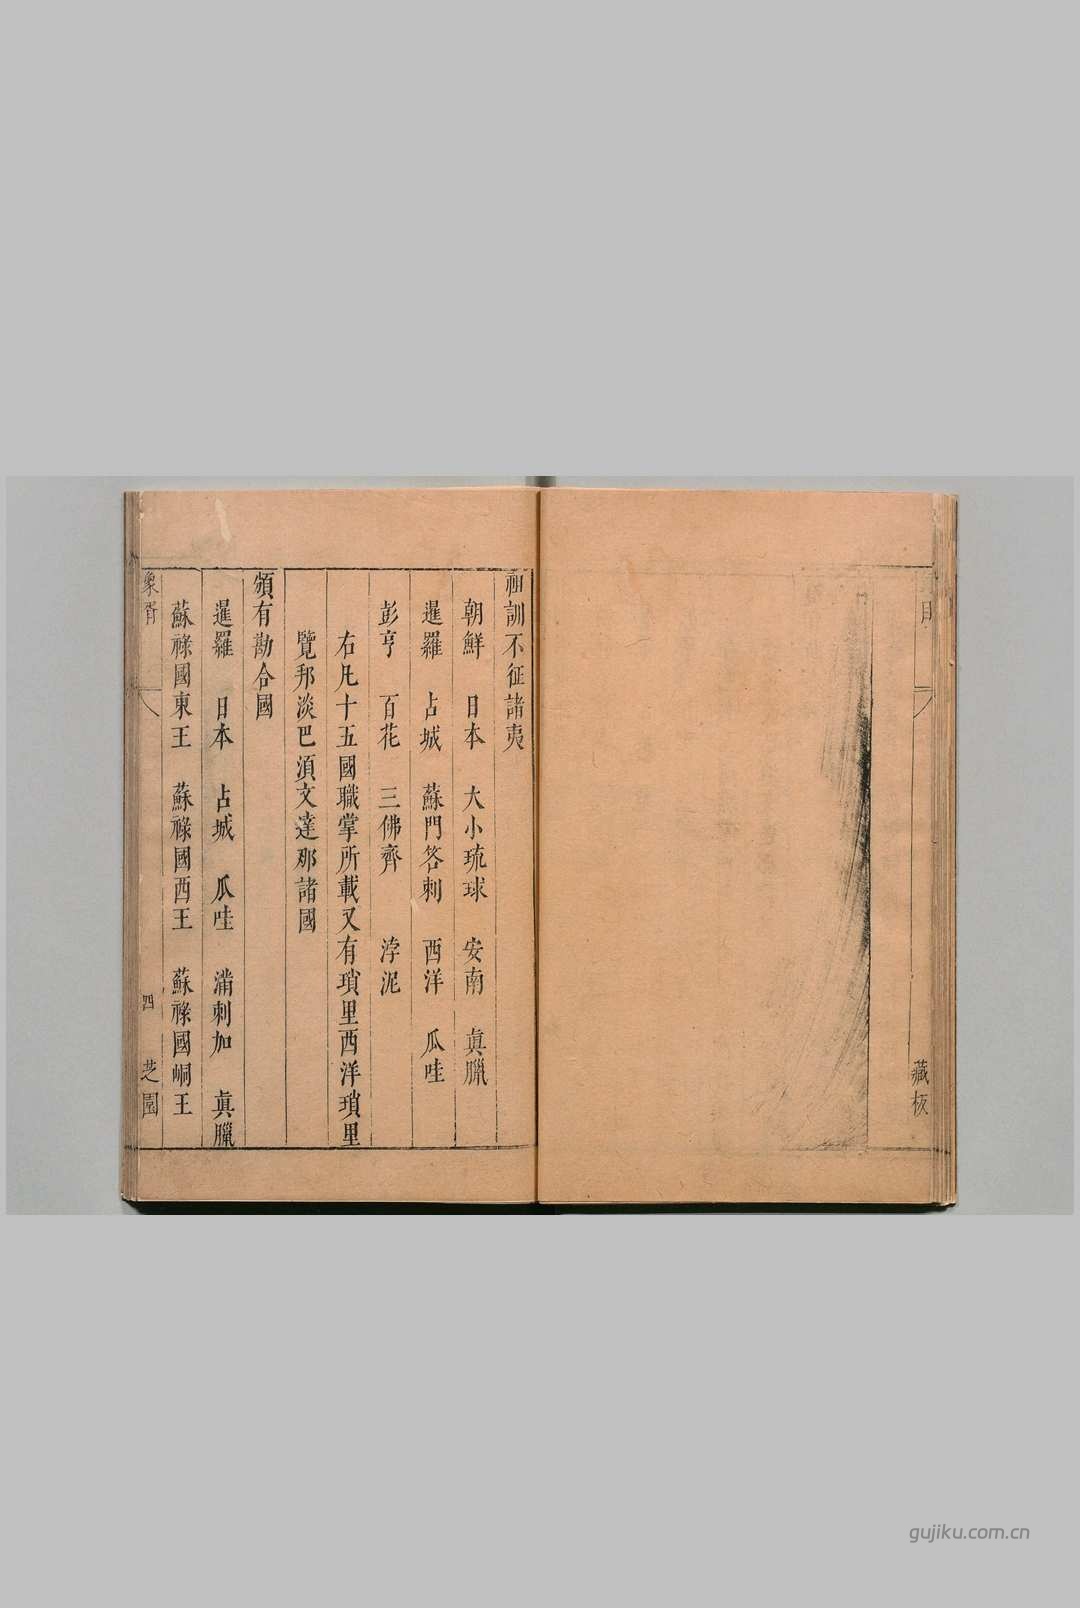 目
藏板
祖訓不征諸夷
朝鮮 日本 大小琉球 安南 眞臘
暹羅 占城 蘇門答剌 西洋 瓜哇
彭亨 百花 三佛齊 浡泥
右凡十五國職掌所載又有瑣里西洋瑣里
覽邦淡巴須文達那諸國
頒有勘合國
暹羅 日本 占城 瓜哇 滿剌加 眞臘
蘇祿國東王 蘇祿國西王 蘇祿國峒王
象胥 四 芝園
gujiku.com.cn